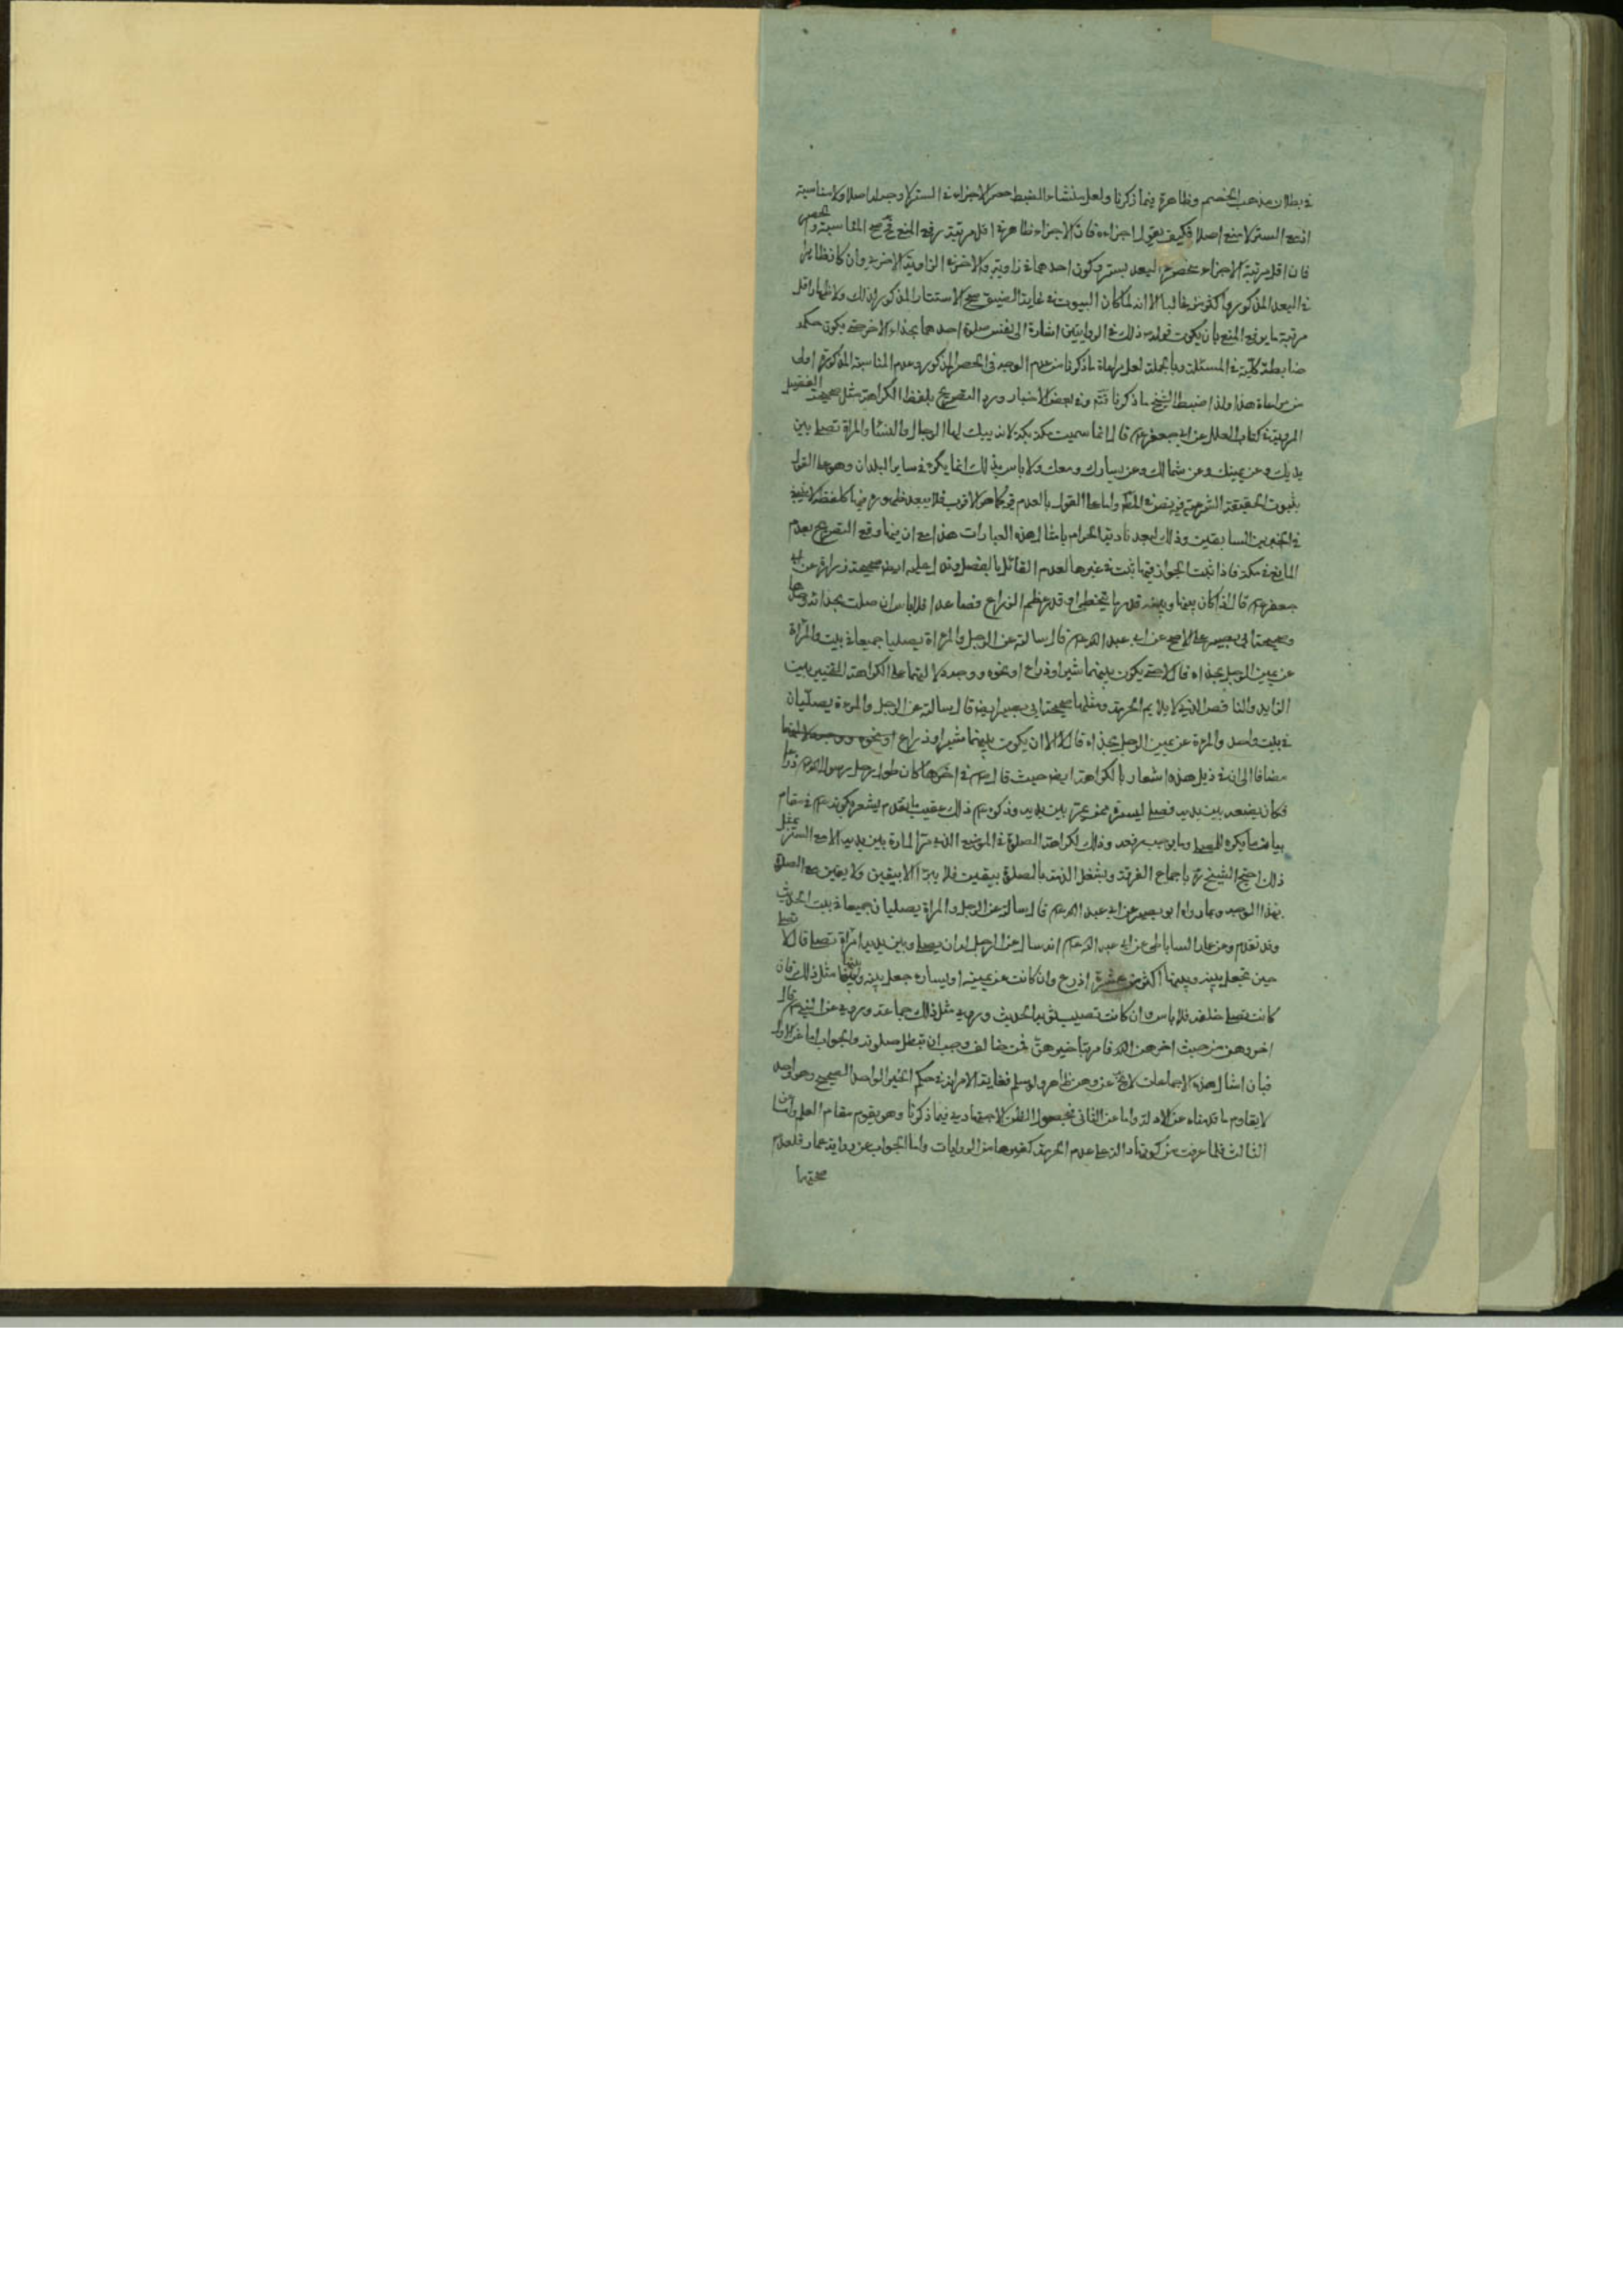 في بطلان مذهب الخصم وظاهرة فيما ذكرنا ولعل منشاء الضبط حصر الاجزاء في الستر لا وجه له اصلا ولا مناسبة
اذ مع الستر لا منع اصلا فكيف يقول اجزاءه فان الاجزاء ظاهر في اقل مرتبة رفع المنع فح تصح المناسبة والحصر
فان اقل مرتبة الاجزاء البعد بستر وكون احدهما في زاوية والاخر في الزاوية الاخرى وان كان ظاهرا
في البعد المذكور واكثر من غالبا الا انه لما كان البيوت في غاية الضيق صح الاستتار المذكور لذلك ولاظهار اقل
مرتبة ما يرفع المنع بان يكون قوله ذلك في الروايتين اشارة الى نفس صلوة احدهما بحذاء الاخر حتى يكون حكمه
ضابطة كلية في المسئلة وبالجملة لعل مراعاة ما ذكرنا من عدم الوجه في الحصر المذكور وعدم المناسبة المذكورة اولى
من مراعاة هذا ولذا ضبط الشيخ ما ذكرنا فتم وفي بعض الاخبار ورد التصريح بلفظ الكراهة مثل صحيحة الفضيل
المروية في كتاب العلل عن ابي جعفر عم قال انما سميت مكة بكة لانه يبك بها الرجال والنساء والمراة تصلي بين
يديك وعن يمينك وعن شمالك وعن يسارك ومعك ولا باس بذلك انما يكره في ساير البلدان وهو على القول
بثبوت الحقيقة الشرعية فيه نص في المط واما على القول بالعدم كما هو الاقرب فلا يبعد ظهوره فيها كلفظ لا ينبغي
في الخبرين السابقين وذلك لبعد تادية الحرام بامثال هذه العبارات هذا مع ان فيها وقع التصريح بعدم
المانع في مكة فاذا ثبت الجواز فيها ثبت في غيرها لعدم القائل بالفصل ويدل عليه ايض صحيحة زرارة عن ابي
جعفر عم قال اذا كان بينها وبينه قدر ما يتخطى او قدر عظم الذراع فصاعدا فلا باس ان صلت بحذائه وحدها
وصحيحة ابي بصير على الاصح عن ابي عبد الله عم قال سالته عن الرجل والمراة يصليا جميعا في بيت والمراة
عن يمين الرجل بحذاه قال لا حتى يكون بينهما شبرا وذراع او نحوه ووجه دلالتهما على الكراهة التخيير بين
الزايد والناقص الذي لا يلايم الحرمة ومثلها صحيحة ابي بصير ايض قال سالته عن الرجل والمرءة يصليان
في بيت واحد والمرءة عن يمين الرجل بحذاه قال لا الا ان يكون بينهما شبرا وذراع او نحوه ووجه دلالتهما
مضافا الى ان في ذيل هذه اشعار بالكراهة ايض حيث قال عم في اخرها كان طول رحل رسول الله ص ذراعا
فكان يضعه بين يديه فصلى ليستره ممن يمر بين يديه وذكره عم ذلك عقيب ما تقدم يشعر بكونه عم في مقام
بيان ما يكره للمصلي وما يوجب رفعه وذلك لكراهة الصلوة في الموضع الذي مر المارة بين يديه الا مع الستر بمثل
ذلك احتج الشيخ ره باجماع الفرقة وبشغل الذمة بالصلوة بيقين فلا يبرء الا بيقين ولا يقين مع الصلوة
بهذا الوجه وبما رواه ابو بصير عن ابي عبد الله عم قال سالته عن الرجل والمراة يصليان جميعا في بيت الحديث
وقد تقدم وعن عمار الساباطي عن ابي عبد الله عم انه سال عن الرجل له ان يصلي وبين يديه امراة تصلي قال لا تصلي
حين تجعل بينه وبينها اكثر من عشرة اذرع وان كانت عن يمينه او يساره جعل بينه وبينها مثل ذلك فان
كانت تصلي خلفه فلا باس وان كانت تصيب ثوبه الحديث وروى مثل ذلك جماعة وروى عن النبي ص قال
اخروهن من حيث اخرهن الله فامر بتاخيرهن فمن خالف وجب ان تبطل صلوته والجواب اما عن الاول
فبان امثال هذه الاجماعات لا يخ عن وهن ظاهر ولو سلم فغاية الامر انه في حكم الخبر الواحد الصحيح وهو لوحده
لا يقاوم ما قدمناه من الادلة واما عن الثاني فبحصول الظن الاجتهادي فيما ذكرنا وهو يقوم مقام العلم واما عن
الثالث فلما عرفت من كونها دالة على عدم الحرمة كغيرها من الروايات واما الجواب عن رواية عمار فلعدم
صحتها